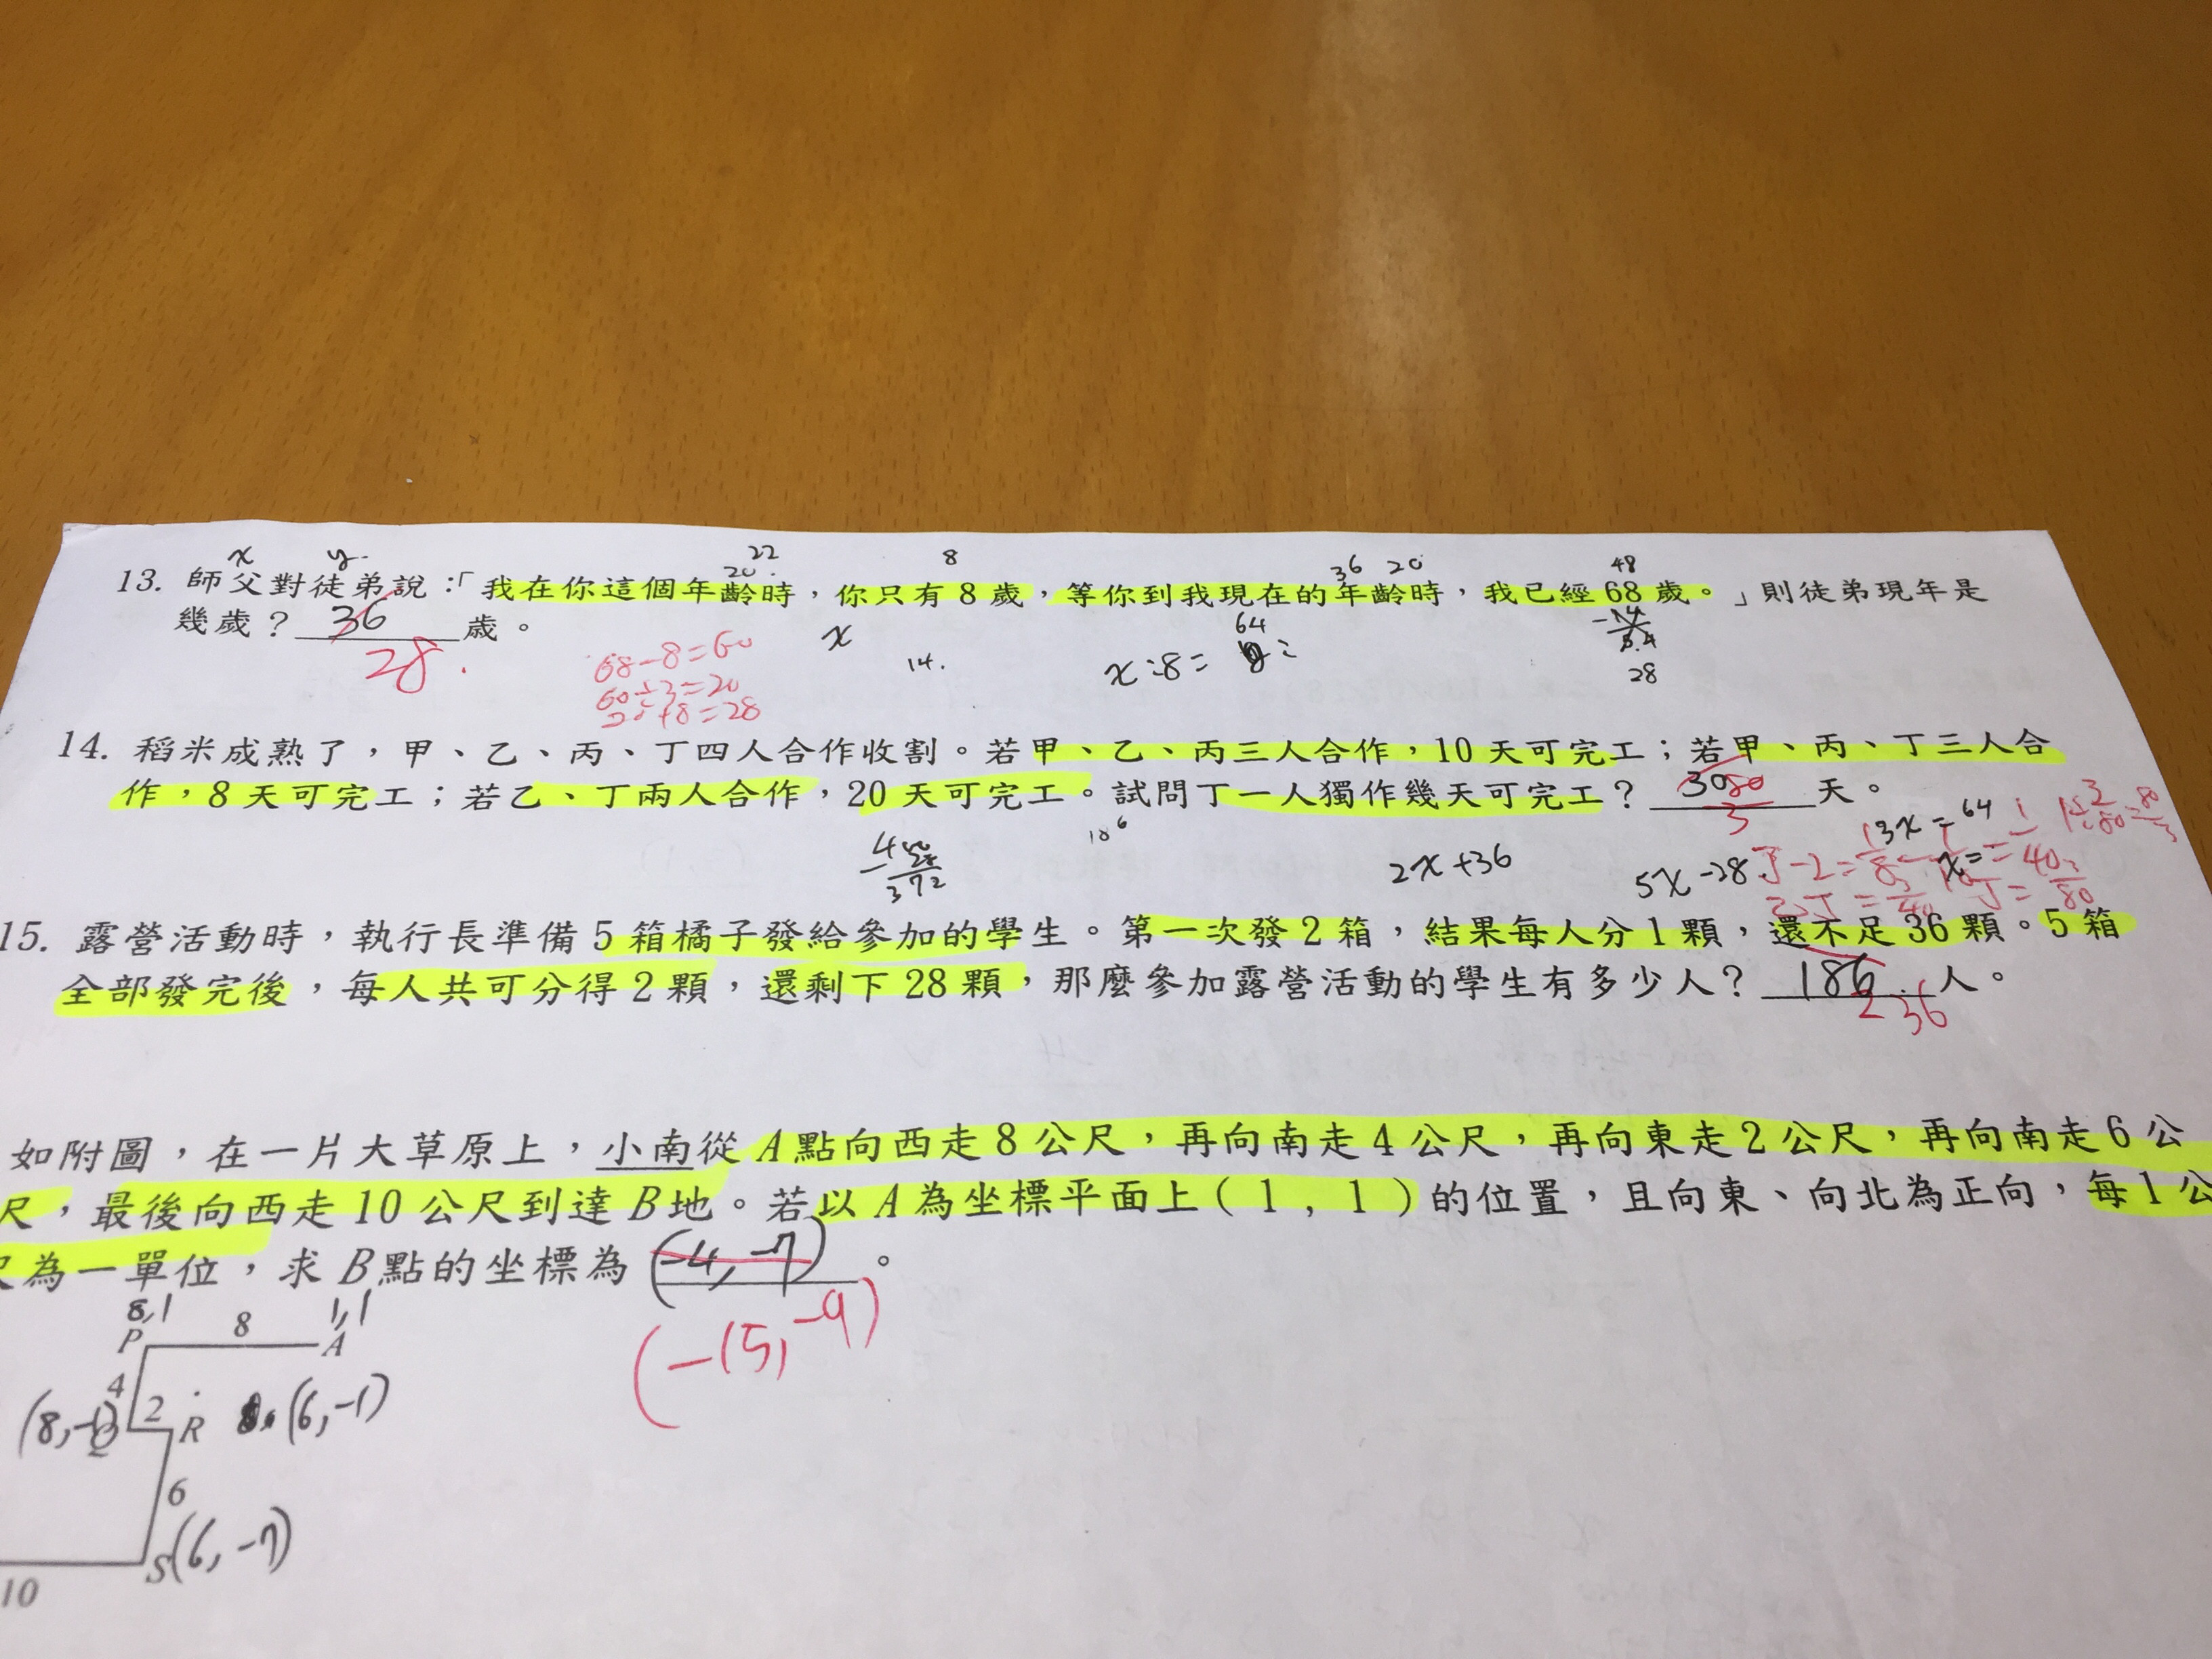 x y. 22 8 48
20. 36 20
13. 師父對徒弟說：「我在你這個年齡時，你只有8歲，等你到我現在的年齡時，我已經68歲。」則徒弟現年是
幾歲？36歲。
28.
68-8=60
60÷3=20
20+8=28
x
14.
x-8=
64
28
14. 稻米成熟了，甲、乙、丙、丁四人合作收割。若甲、乙、丙三人合作，10天可完工；若甲、丙、丁三人合
作，8天可完工；若乙、丁兩人合作，20天可完工。試問丁一人獨作幾天可完工？30 80/3 天。
372
2x+36
5x-28
3x=64
x=
15. 露營活動時，執行長準備5箱橘子發給參加的學生。第一次發2箱，結果每人分1顆，還不足36顆。5箱
全部發完後，每人共可分得2顆，還剩下28顆，那麼參加露營活動的學生有多少人？186人。
236
如附圖，在一片大草原上，小南從A點向西走8公尺，再向南走4公尺，再向東走2公尺，再向南走6公
尺，最後向西走10公尺到達B地。若以A為坐標平面上(1,1)的位置，且向東、向北為正向，每1公
尺為一單位，求B點的坐標為(-4,-7)。
(-15,-9)
8,1 8 1,1
P A
4
(8,-1) Q 2 R (6,-1)
6
S (6,-7)
10